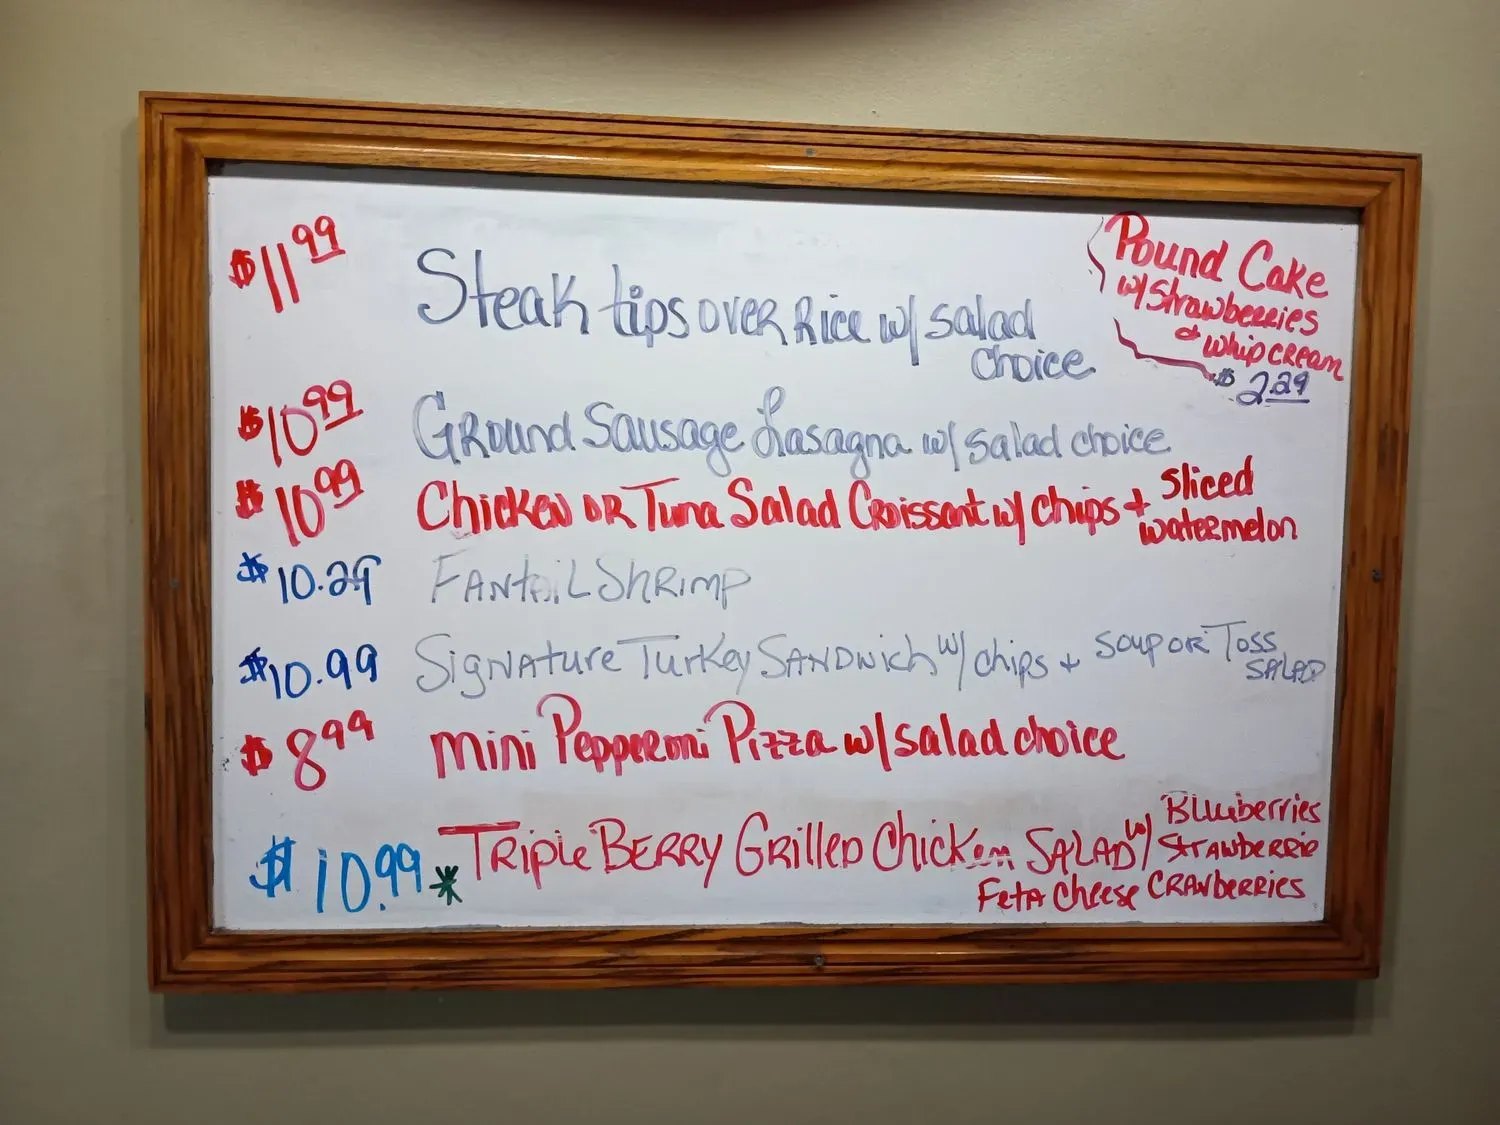 $11.99 Steak tips over Rice w/ salad
choice
Pound Cake
w/ Strawberries
& whip cream
$2.29
$10.99 Ground Sausage Lasagna w/ salad choice
$10.99 Chicken or Tuna Salad Croissant w/ chips + sliced
watermelon
$10.29 Fantail Shrimp
$10.99 Signature Turkey Sandwich w/ chips + soup or Toss
Salad
$8.99 mini Pepperoni Pizza w/ salad choice
$10.99 * Triple Berry Grilled Chicken Salad w/ Blueberries
Strawberrie
Feta Cheese Cranberries